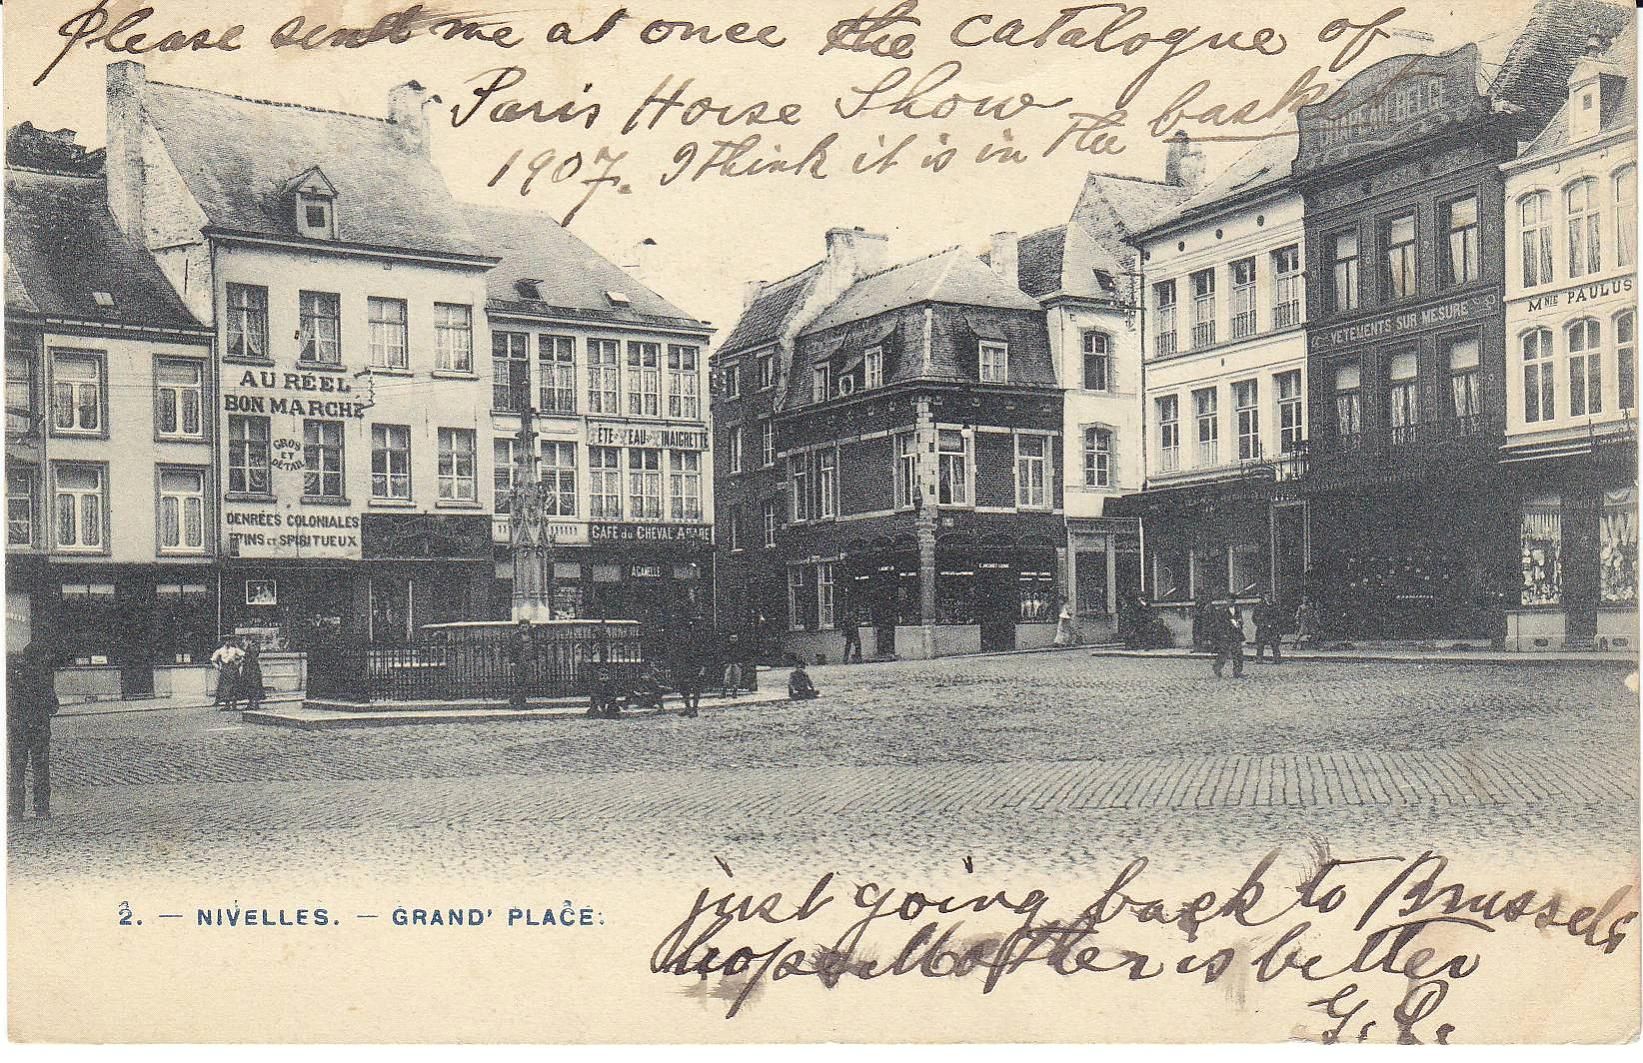 Please send me at once the catalogue of
Paris Horse Show
1907. I think it is in the basket
AU RÉEL
BON MARCHÉ
GROS
ET
DÉTAIL
DENRÉES COLONIALES
VINS ET SPIRITUEUX
CAFÉ du CHEVAL ARABE
A. CANELLE
VÊTEMENTS SUR MESURE
MNIE PAULUS
2. — NIVELLES. — GRAND' PLACE.
just going back to Brussels
hope Mother is better
G. L.